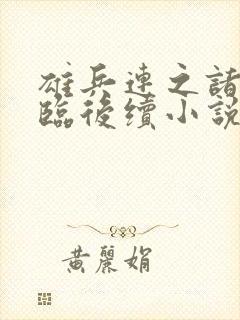 雄兵連之諸
臨後續小說
黃麗娟